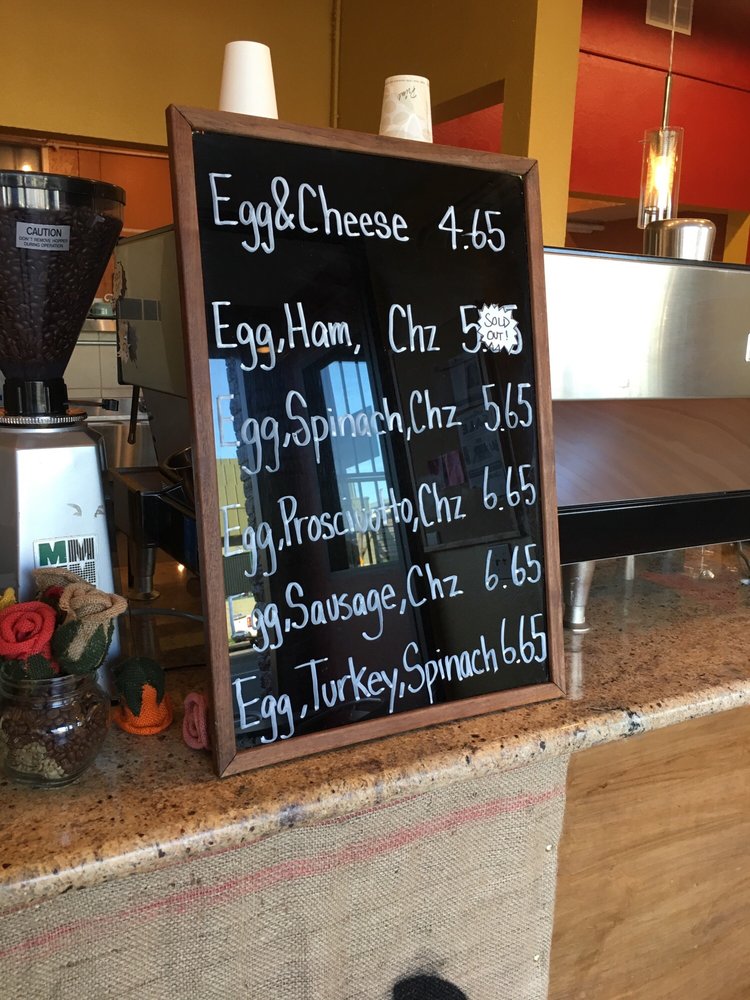 CAUTION
DON'T REMOVE HOPPER
DURING OPERATION
Egg&Cheese 4.65
Egg, Ham, Chz 5.
SOLD
OUT!
5
Egg, Spinach, Chz 5.65
Egg, Prosciutto, Chz 6.65
gg, Sausage, Chz 6.65
Egg, Turkey, Spinach 6.65